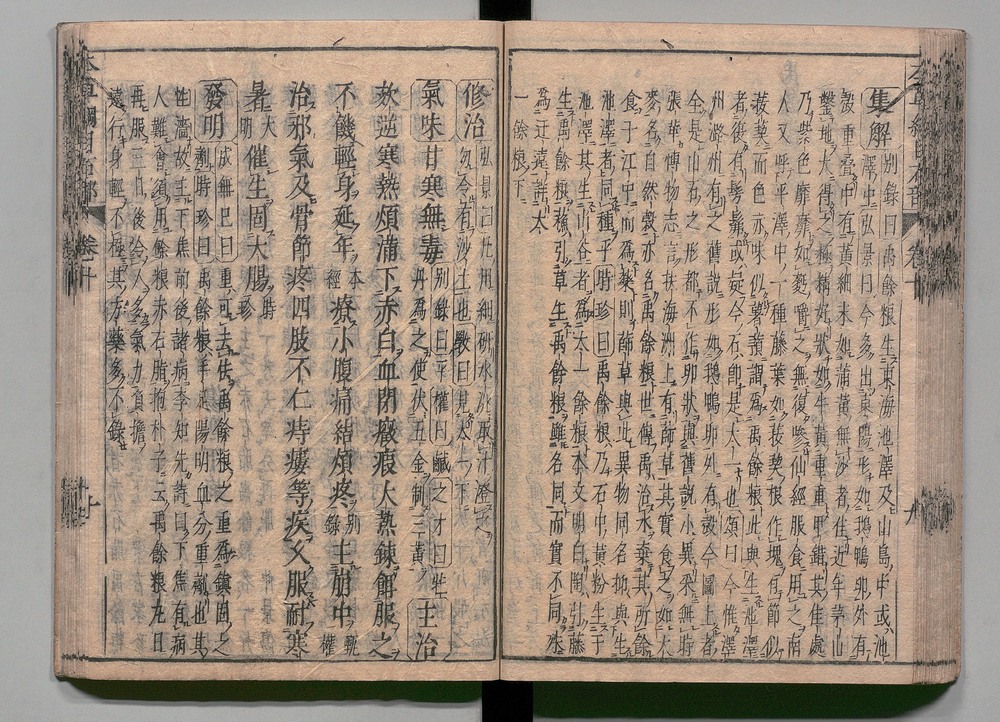 集解 別錄曰禹餘粮生東海池澤及山島中或池
澤中弘景曰今多出東陽形如鵝鴨卵外有
殼重疊中有黃細末如蒲黃無沙者佳近年茅山
鑿地大得之極精好狀如牛黃重重甲錯其佳處
乃紫色靡靡如麪嚼之無復磣仙經服食用之南
人又呼平澤中一種藤葉如菝葜根作塊有節似
菝葜而色赤味似薯蕷謂爲禹餘粮此與生池澤
者復有髣髴或疑今石即是太一也頌曰今惟澤
州潞州有之舊說形如鵝鴨卵外有殼今圖上者
全是山石之形都不作卵狀與舊說小異采無時
張華博物志言扶海洲上有蒒草其實食之如大
麥名自然穀亦名禹餘粮世傳禹治水棄其所餘
食于江中而爲藥則蒒草與此異物同名抑與生
池澤者同種乎時珍曰禹餘粮乃石中黃粉生于
池澤其生山谷者爲太一餘粮本文明白陶引藤
生禹餘粮蘇引草生禹餘粮雖名同而實不同殊
爲迂遠詳太
一餘粮下
修治 弘景曰凡用細研水洮取汁澄之
勿令有沙土也斅曰見太一下
氣味甘寒無毒 別錄曰平權曰鹹之才曰牡
丹爲之使伏五金制三黃 主治
欬逆寒熱煩滿下赤白血閉癥瘕大熱鍊餌服之
不饑輕身延年 本經 療小腹痛結煩疼 別錄 主崩中 甄權
治邪氣及骨節疼四肢不仁痔瘻等疾久服耐寒
暑 大明 催生固大腸 時珍
發明 成無已曰重可去怯禹餘粮之重爲鎮固之
劑時珍曰禹餘粮手足陽明血分重劑也其
性濇故主下焦前後諸病李知先詩曰下焦有病
人難會須用餘粮赤石脂抱朴子云禹餘粮丸日
再服三日後令人多氣力負擔
遠行身輕不極其方藥多不錄